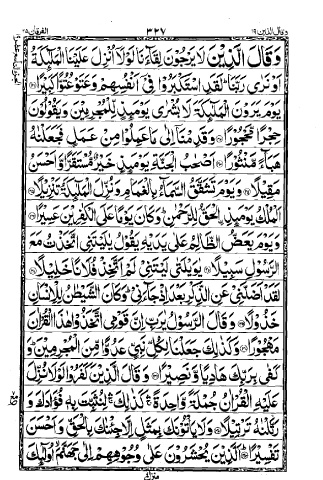 وقال الذين ١٩ ٣٢٧ الفرقان ٢٥
وَقَالَ الَّذِيْنَ لَا يَرْجُوْنَ لِقَآءَنَا لَوْلَآ اُنْزِلَ عَلَيْنَا الْمَلٰٓئِكَةُ
اَوْ نَرٰى رَبَّنَا ؕ لَقَدِ اسْتَكْبَرُوْا فِىْۤ اَنْفُسِهِمْ وَعَتَوْ عُتُوًّا كَبِيْرًا
يَوْمَ يَرَوْنَ الْمَلٰٓئِكَةَ لَا بُشْرٰى يَوْمَئِذٍ لِّلْمُجْرِمِيْنَ وَيَقُوْلُوْنَ
حِجْرًا مَّحْجُوْرًا وَقَدِمْنَاۤ اِلٰى مَا عَمِلُوْا مِنْ عَمَلٍ فَجَعَلْنٰهُ
هَبَآءً مَّنْثُوْرًا اَصْحٰبُ الْجَنَّةِ يَوْمَئِذٍ خَيْرٌ مُّسْتَقَرًّا وَّاَحْسَنُ
مَقِيْلًا وَيَوْمَ تَشَقَّقُ السَّمَآءُ بِالْغَمَامِ وَنُزِّلَ الْمَلٰٓئِكَةُ تَنْزِيْلًا
اَلْمُلْكُ يَوْمَئِذِ ۨالْحَقُّ لِلرَّحْمٰنِ ؕ وَكَانَ يَوْمًا عَلَى الْكٰفِرِيْنَ عَسِيْرًا
وَيَوْمَ يَعَضُّ الظَّالِمُ عَلٰى يَدَيْهِ يَقُوْلُ يٰلَيْتَنِى اتَّخَذْتُ مَعَ
الرَّسُوْلِ سَبِيْلًا يٰوَيْلَتٰى لَيْتَنِىْ لَمْ اَتَّخِذْ فُلَانًا خَلِيْلًا
لَقَدْ اَضَلَّنِىْ عَنِ الذِّكْرِ بَعْدَ اِذْ جَآءَنِىْ ؕ وَكَانَ الشَّيْطٰنُ لِلْاِنْسَانِ
خَذُوْلًا وَقَالَ الرَّسُوْلُ يٰرَبِّ اِنَّ قَوْمِى اتَّخَذُوْا هٰذَا الْقُرْاٰنَ
مَهْجُوْرًا وَكَذٰلِكَ جَعَلْنَا لِكُلِّ نَبِىٍّ عَدُوًّا مِّنَ الْمُجْرِمِيْنَ ؕ وَ
كَفٰى بِرَبِّكَ هَادِيًا وَّنَصِيْرًا وَقَالَ الَّذِيْنَ كَفَرُوْا لَوْلَا نُزِّلَ
عَلَيْهِ الْقُرْاٰنُ جُمْلَةً وَّاحِدَةً ۛۚ كَذٰلِكَ ۛۚ لِنُثَبِّتَ بِهٖ فُؤَادَكَ وَ
رَتَّلْنٰهُ تَرْتِيْلًا وَلَا يَاْتُوْنَكَ بِمَثَلٍ اِلَّا جِئْنٰكَ بِالْحَقِّ وَاَحْسَنَ
تَفْسِيْرًا اَلَّذِيْنَ يُحْشَرُوْنَ عَلٰى وُجُوْهِهِمْ اِلٰى جَهَنَّمَ ۙ اُولٰٓئِكَ
منزل